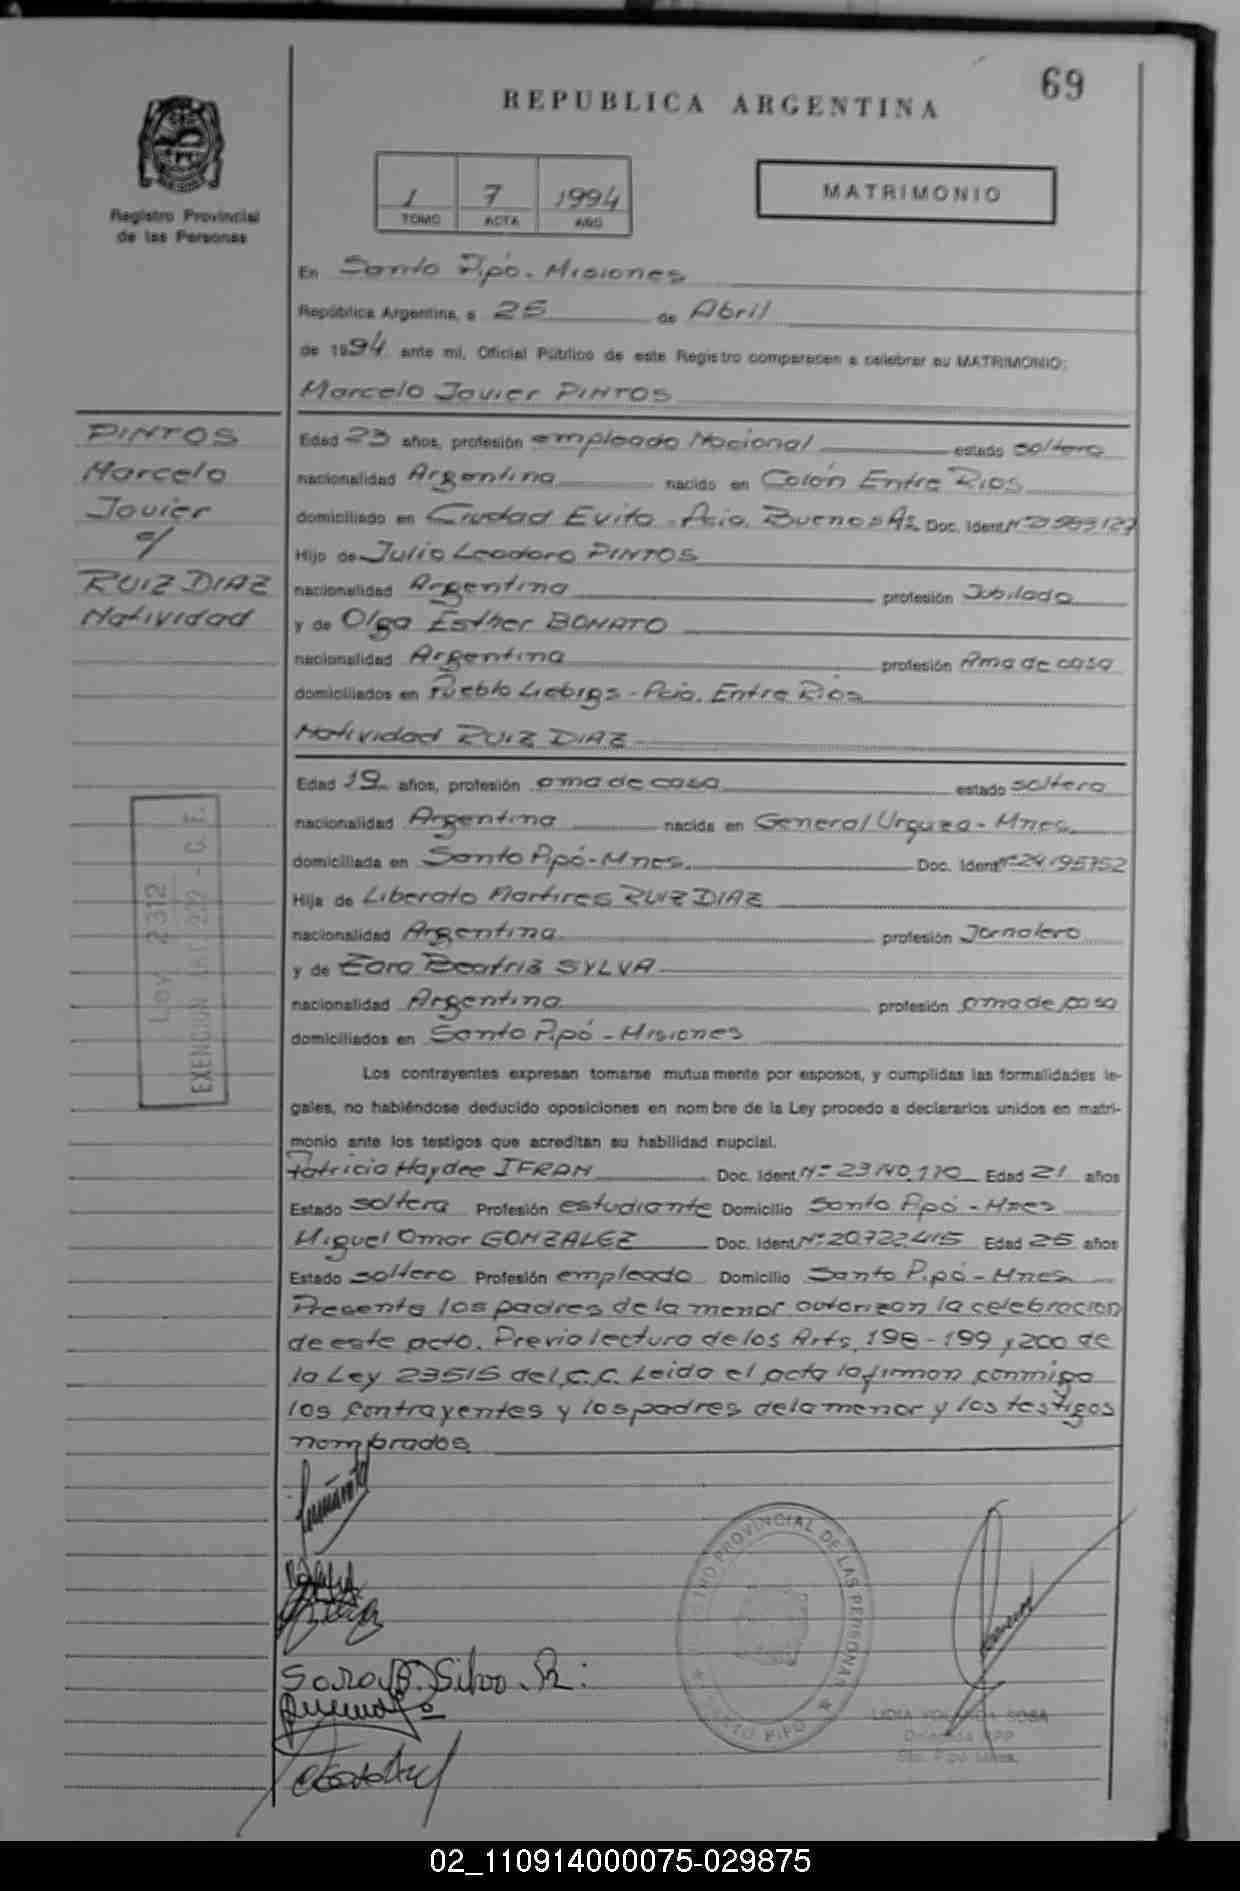 69
REPUBLICA ARGENTINA
Registro Provincial
de las Personas
1 7 1994
TOMO ACTA AÑO
MATRIMONIO
En Santo Pipó - Misiones
República Argentina, a 25 de Abril
de 1994 ante mí, Oficial Público de este Registro comparecen a celebrar su MATRIMONIO:
Marcelo Javier PINTOS
PINTOS
Marcelo
Javier
c/
RUIZ DIAZ
Natividad
Edad 23 años, profesión empleado Nacional estado soltero
nacionalidad Argentina nacido en Colón Entre Rios
domiciliado en Ciudad Evita - Pcia. Buenos As. Doc. Ident Nº
Hijo de Julio Leodoro PINTOS
nacionalidad Argentina profesión Jubilado
y de Olga Esther BONATO
nacionalidad Argentina profesión Ama de casa
domiciliados en Pueblo Liebigs - Pcia. Entre Rios
Natividad RUIZ DIAZ
Edad 19 años, profesión ama de casa estado soltera
nacionalidad Argentina nacida en General Urquza - Mnes.
domiciliada en Santo Pipó - Mnes. Doc. Ident Nº 24.195.752
Hija de Liberato Martires RUIZ DIAZ
nacionalidad Argentina profesión Jornalero
y de Beatriz SYLVA
nacionalidad Argentina profesión ama de casa
domiciliados en Santo Pipó - Misiones
Ley 2312
EXENCION ART. 222 - C. F.
Los contrayentes expresan tomarse mutuamente por esposos, y cumplidas las formalidades le-
gales, no habiéndose deducido oposiciones en nombre de la Ley procedo a declararlos unidos en matri-
monio ante los testigos que acreditan su habilidad nupcial.
Patricia Haydee IFRAN Doc. Ident Nº 23.140.110 Edad 21 años
Estado soltera Profesión estudiante Domicilio Santo Pipó - Mnes
Miguel Omar GONZALEZ Doc. Ident Nº 20.722.415 Edad 25 años
Estado soltero Profesión empleado Domicilio Santo Pipó - Mnes
Presente los padres de la menor autorizan la celebracion
de este acto. Previo lectura de los Arts. 198 - 199 y 200 de
la Ley 23515 del C.C. Leido el acta la firman conmigo
los contrayentes y los padres de la menor y los testigos
nombrados
Sara B. Silva. R:
REGISTRO PROVINCIAL DE LAS PERSONAS
SANTO PIPO
LIDIA YOLANDA SOSA
Delegada RPP
Sto. Pipó Mnes.
02_110914000075-029875